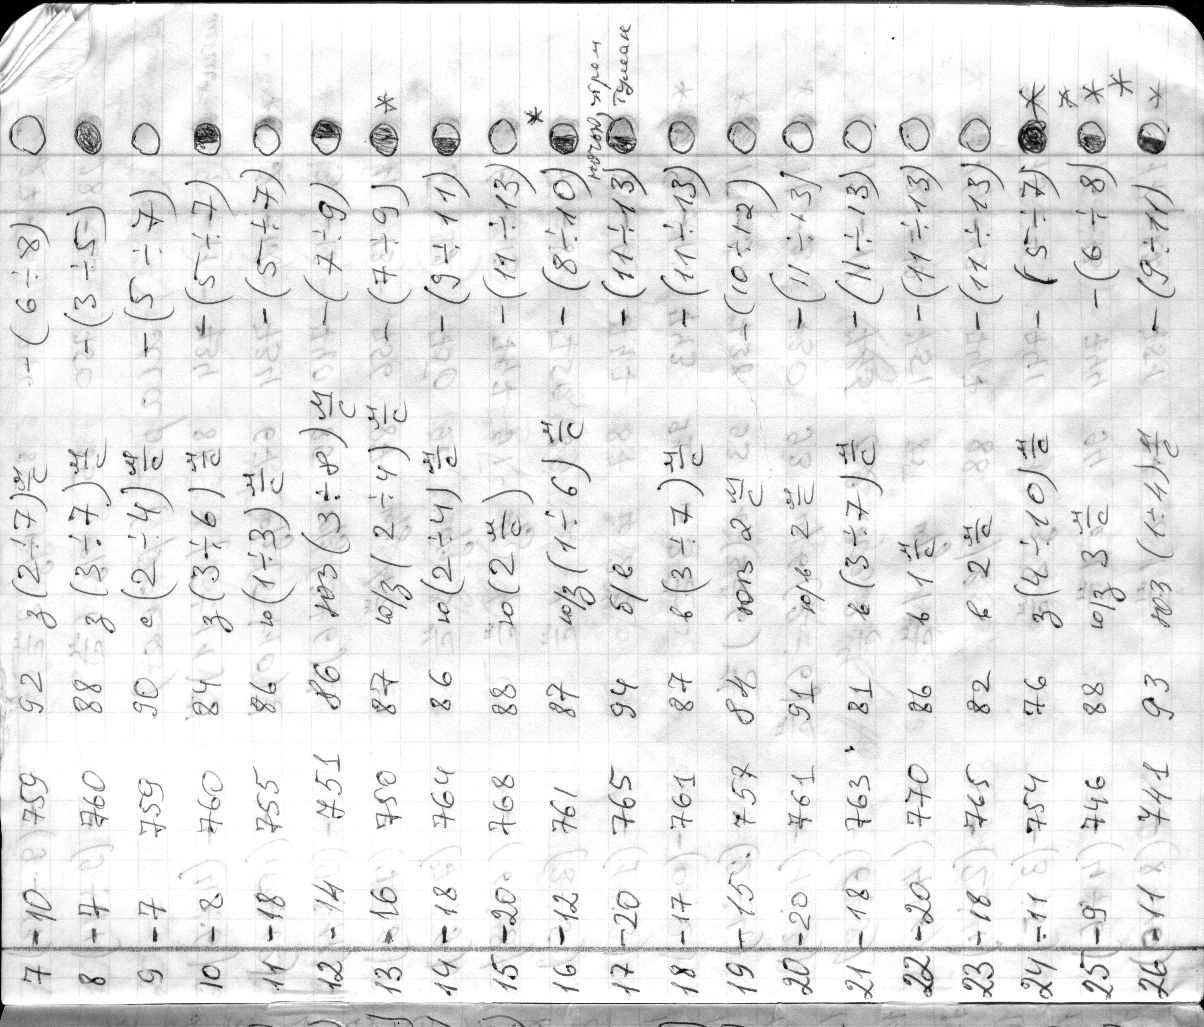 7 -10 759 92 з (2÷7) м/с -(6÷8)
8 -7 760 88 з (3÷7) м/с -(3÷5)
9 -7 759 90 с (2÷4) м/с -(5÷7)
10 -8 760 84 з (3÷6) м/с -(5÷7)
11 -18 755 86 ю (1÷3) м/с -(5÷7)
12 -14 751 86 юз (3÷8) м/с -(7÷9)
13 -16 750 87 ю/з (2÷4) м/с -(7÷9) *
14 -18 764 86 ю (2÷4) м/с -(9÷11)
15 -20 768 88 ю (2 м/с) -(11÷13)
16 -12 761 87 ю/з (1÷6) м/с -(8÷10) *
17 -20 765 94 б/в -(11÷13) ночью, утром туман
18 -17 761 87 в (3÷7) м/с -(11÷13)
19 -15 757 84 юз 2 м/с -(10÷12)
20 -20 761 91 ю/в 2 м/с -(11÷13)
21 -18 763 81 в (3÷7) м/с -(11÷13)
22 -20 770 86 в 1 м/с -(11÷13)
23 -18 765 82 в 2 м/с -(11÷13)
24 -11 754 76 з (4÷10) м/с -(5÷7) *
25 -9 746 88 ю/з 3 м/с -(6÷8) * * *
26 -11 741 93 юз (1÷4) м/с -(9÷11) *